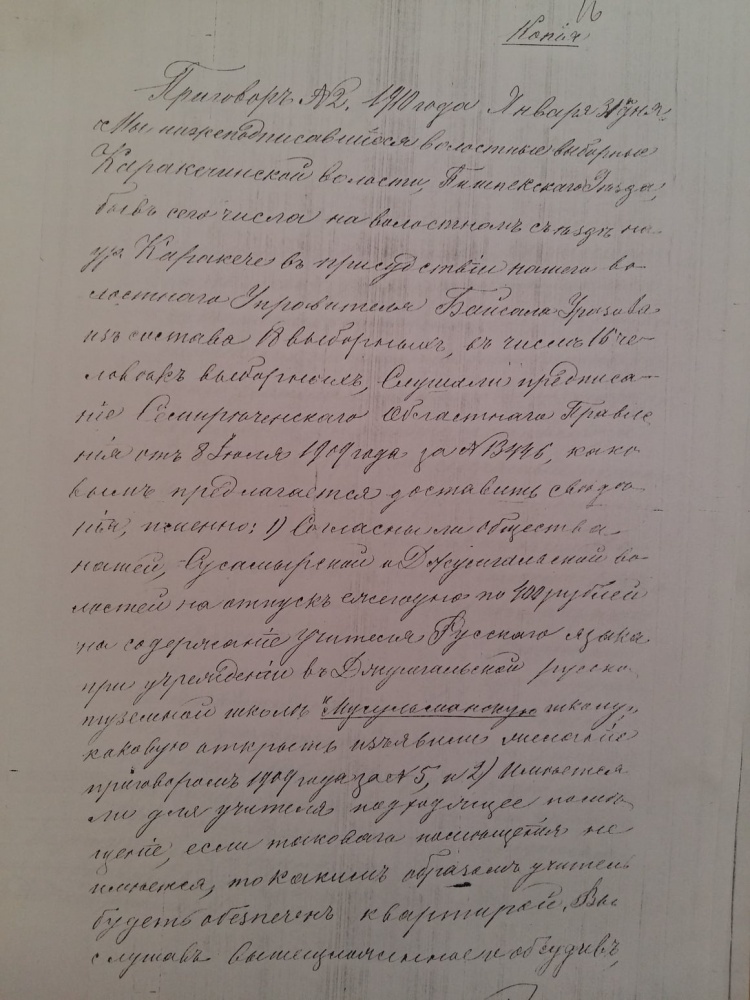 Копія
Приговоръ №2. 1910 года Января 31 дня.
Мы нижеподписавшіеся волостные выборные
Каракечинской волости, Пишпекскаго Уѣзда,
бывъ сего числа на волостномъ съѣздѣ на
ур. Каракече въ присудствіи нашего во-
лостнаго Управителя Байсала Уразова
изъ состава 18 выборныхъ, въ числѣ 16 че-
ловѣкъ выборныхъ, Слушали предписа-
ніе Семирѣченскаго Областнаго Правле
нія отъ 8 Іюля 1909 года за № 13446, како
вымъ предлагается доставить свѣдѣ
нія, именно: 1) Согласны ли общества
нашей, Сусамырской и Джумгальской во-
лостей на отпускъ ежегодно по 400 рублей
на содержаніе Учителя Русскаго языка
при учрежденіи въ Джумгальской русско
туземной школы "Мусульманскую школу,
каковую открыть изъявили желаніе
приговоромъ 1909 года за № 5, и 2) Имѣется
ли для учителя подходящее помѣ
щеніе, если таковаго помѣщенія не
имѣется, то какимъ образомъ учитель
будетъ обезпеченъ квартирой. Вы
слушавъ вышеизложенное и обсудивъ,